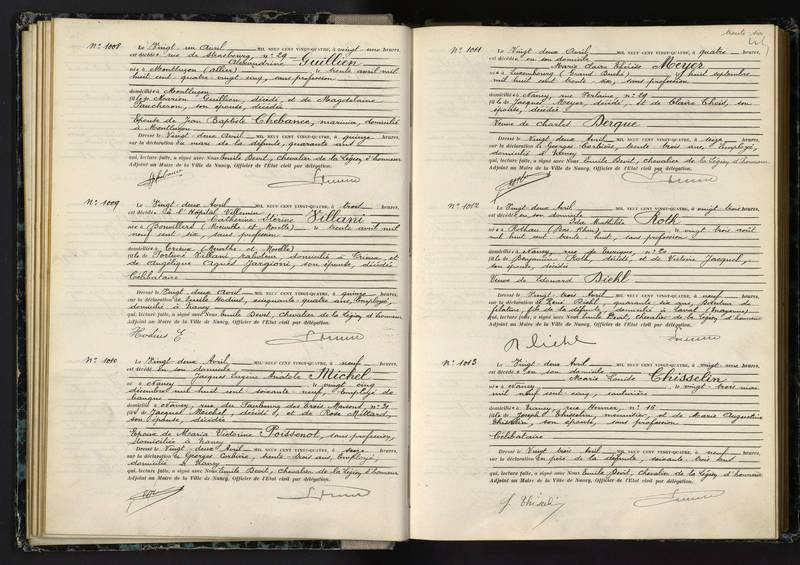 N° 1008
Le Vingt un Avril MIL NEUF CENT VINGT-QUATRE, à vingt une heures,
est décédée rue de Strasbourg, n° 29
Alexandrine Guillien
née à Montluçon (Allier) le trente avril mil
huit cent quatre vingt cinq, sans profession
domiciliée à Montluçon
fille de Marien Guillien décédé, et de Magdeleine
Faucheron, son épouse, décédée
Epouse de Jean Baptiste Chebance, marinier, domicilié
à Montluçon
Dressé le Vingt deux Avril MIL NEUF CENT VINGT-QUATRE, à quinze heures,
sur la déclaration du mari de la défunte, quarante ans
qui, lecture faite, a signé avec Nous Emile Devit, chevalier de la Légion d'honneur
Adjoint au Maire de la Ville de Nancy, Officier de l'Etat civil par délégation.
N° 1009
Le Vingt deux Avril MIL NEUF CENT VINGT-QUATRE, à trois heures,
est décédée à l'Hôpital Villemin
Catherine Villani
née à Bouvillers (Meurthe et Moselle) le trente avril mil
neuf cent six, sans profession
domiciliée à Crieux (Meurthe et Moselle)
fille de Fortuné Villani, domicilié à Crieux, et
de Angélique Agnès Jargioni, son épouse, décédée
Célibataire
Dressé le Vingt deux Avril MIL NEUF CENT VINGT-QUATRE, à quinze heures,
sur la déclaration de Emile Hodius, cinquante quatre ans, employé,
domicilié à Nancy
qui, lecture faite, a signé avec Nous Emile Devit, Chevalier de la Légion d'honneur
Adjoint au Maire de la Ville de Nancy, Officier de l'Etat civil par délégation.
Hodius E
N° 1010
Le Vingt deux Avril MIL NEUF CENT VINGT-QUATRE, à neuf heures,
est décédé en son domicile
Jacques Eugène Anatole Michel
né à Nancy le vingt cinq
décembre mil huit cent soixante neuf, Employé de
banque
domicilié à Nancy, rue du Faubourg des Trois Maisons, n° 31
fils de Jacques Michel, décédé, et de Rose Millard,
son épouse, décédée
Epoux de Maria Victorine Poissenot, sans profession,
domiciliée à Nancy
Dressé le Vingt deux Avril MIL NEUF CENT VINGT-QUATRE, à seize heures,
sur la déclaration de Georges Corbière, trente trois ans, Employé,
domicilié à Nancy
qui, lecture faite, a signé avec Nous Emile Devit, Chevalier de la Légion d'honneur
Adjoint au Maire de la Ville de Nancy, Officier de l'Etat civil par délégation.
trente six
N° 1011
Le Vingt deux Avril MIL NEUF CENT VINGT-QUATRE, à quatre heures,
est décédée en son domicile
Marie Claire Elisise Meyer
née à Luxembourg (Grand Duché) le huit septembre
mil huit cent trente six, sans profession
domiciliée à Nancy, rue Verlaine, n° 29
fille de Jacques Meyer, décédé, et de Claire Theis, son
épouse, décédée
Veuve de Charles Bergue
Dressé le Vingt deux Avril MIL NEUF CENT VINGT-QUATRE, à seize heures,
sur la déclaration de Georges Corbière, trente trois ans, Employé,
domicilié à Nancy
qui, lecture faite, a signé avec Nous Emile Devit, chevalier de la Légion d'honneur
Adjoint au Maire de la Ville de Nancy, Officier de l'Etat civil par délégation.
N° 1012
Le Vingt deux Avril MIL NEUF CENT VINGT-QUATRE, à vingt trois heures,
est décédée en son domicile
Mathilde Roth
née à Rothau (Bas Rhin) le vingt trois août
mil huit cent trente huit, sans profession
domiciliée à Nancy, rue de n° 20
fille de Benjamin Roth, décédé, et de Victoire Jacquel,
son épouse, décédée
Veuve de Edouard Diehl
Dressé le Vingt trois Avril MIL NEUF CENT VINGT-QUATRE, à neuf heures,
sur la déclaration de René Diehl, quarante six ans, Directeur de
filature, fils de la défunte, domicilié à Laval (Mayenne)
qui, lecture faite, a signé avec Nous Emile Devit, chevalier de la Légion d'honneur
Adjoint au Maire de la Ville de Nancy, Officier de l'Etat civil par délégation.
R Diehl
N° 1013
Le Vingt deux Avril MIL NEUF CENT VINGT-QUATRE, à vingt une heures,
est décédée en son domicile
Marie Louise Thisselin
née à Nancy le vingt trois mai
mil neuf cent cinq, couturière
domiciliée à Nancy, rue n° 16
fille de Joseph Thisselin, menuisier, et de Marie Augustine
Thisselin, son épouse, sans profession
Célibataire
Dressé le Vingt trois Avril MIL NEUF CENT VINGT-QUATRE, à neuf heures,
sur la déclaration du père de la défunte, soixante trois ans
qui, lecture faite, a signé avec Nous Emile Devit, Chevalier de la Légion d'honneur
Adjoint au Maire de la Ville de Nancy, Officier de l'Etat civil par délégation.